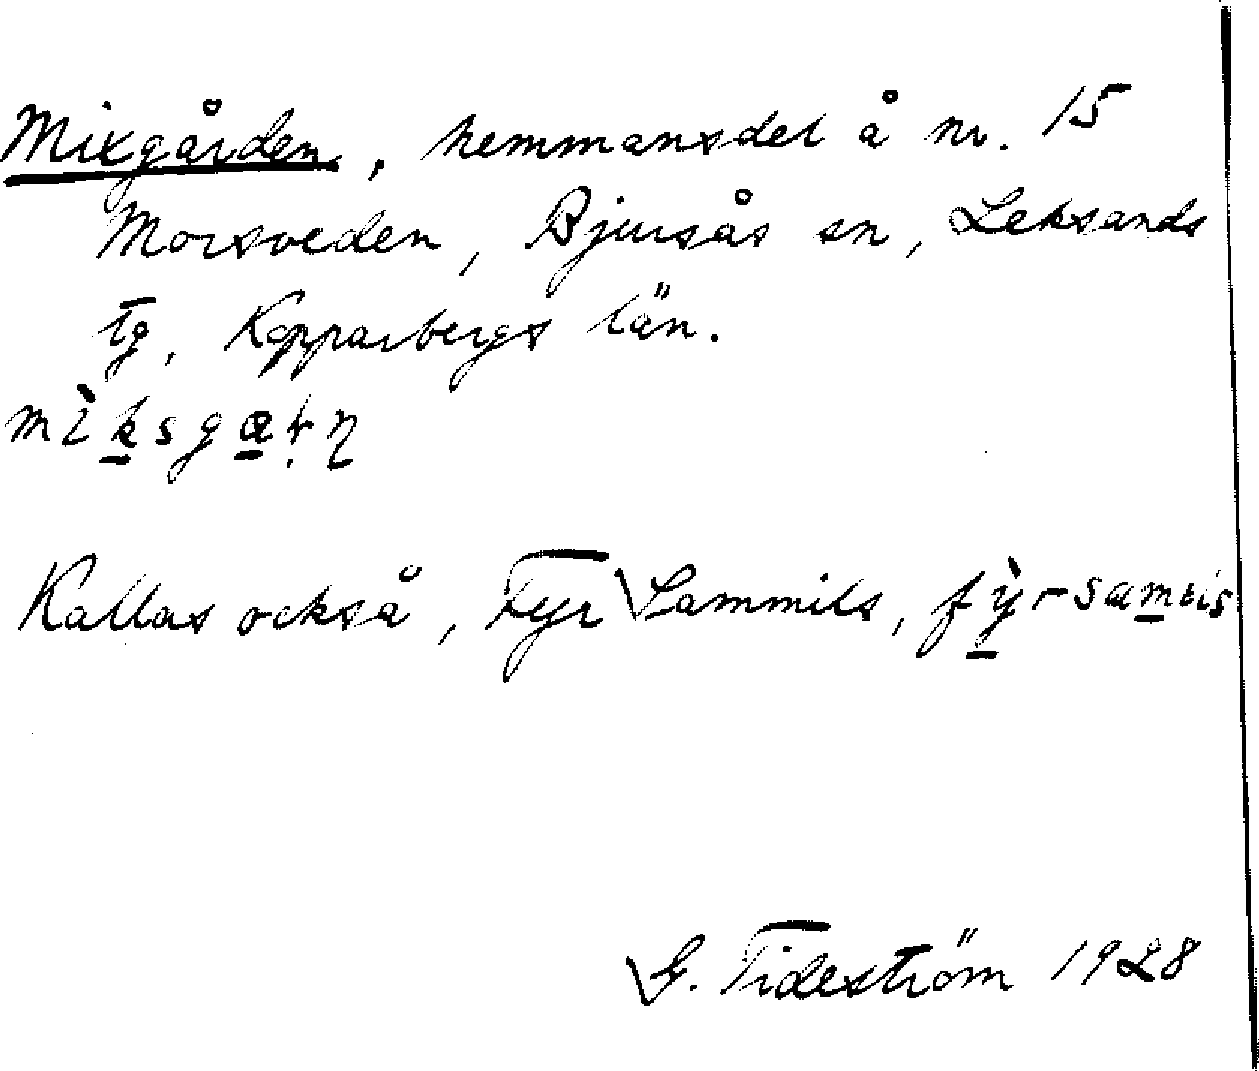 Mixgården, hemmansdel å nr. 15
Morsveden, Bjursås sn, Leksands
tg, Kopparbergs län.
Kallas också, Fyr Sammils,
G. Tideström 1928